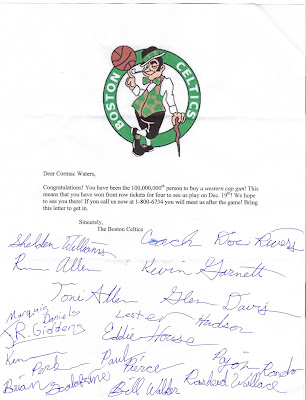 BOSTON CELTICS
Dear Cormac Waters,
Congratulations! You have been the 100,000,000th person to buy a western cap gun! This
means that you have won front row tickets for four to see us play on Dec. 19th! We hope
to see you there! If you call us now at 1-800-6734 you will meet us after the game! Bring
this letter to get in.
Sincerely,
The Boston Celtics
Shelden Williams Coach Doc Rivers
Allen Kevin Garnett
Toni Allen Glen Davis
Marquis Daniels Lester Hudson
J.R. Giddens Eddie House
Ken Perk Paul Pierce Rajon Rondo
Brian Scalabrine Bill Walker Rasheed Wallace